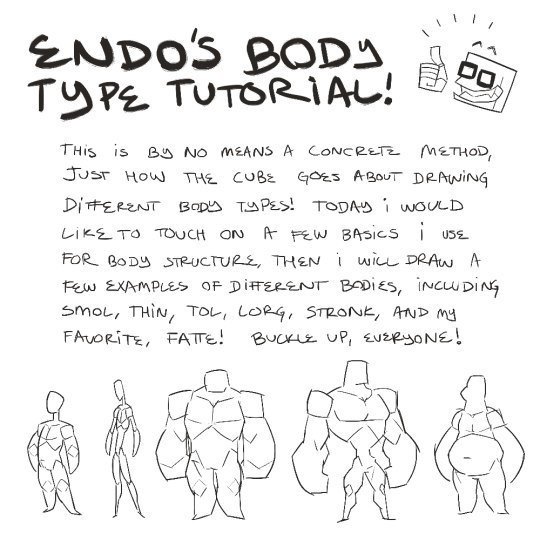 ENDO'S BODY
TYPE TUTORIAL!
THIS IS BY NO MEANS A CONCRETE METHOD,
JUST HOW THE CUBE GOES ABOUT DRAWING
DIFFERENT BODY TYPES! TODAY i WOULD
LIKE TO TOUCH ON A FEW BASICS i USE
FOR BODY STRUCTURE, THEN i WILL DRAW A
FEW EXAMPLES OF DIFFERENT BODIES, INCLUDING
SMOL, THIN, TOL, LORG, STRONK, AND MY
FAVORITE, FATTE! BUCKLE UP, EVERYONE!